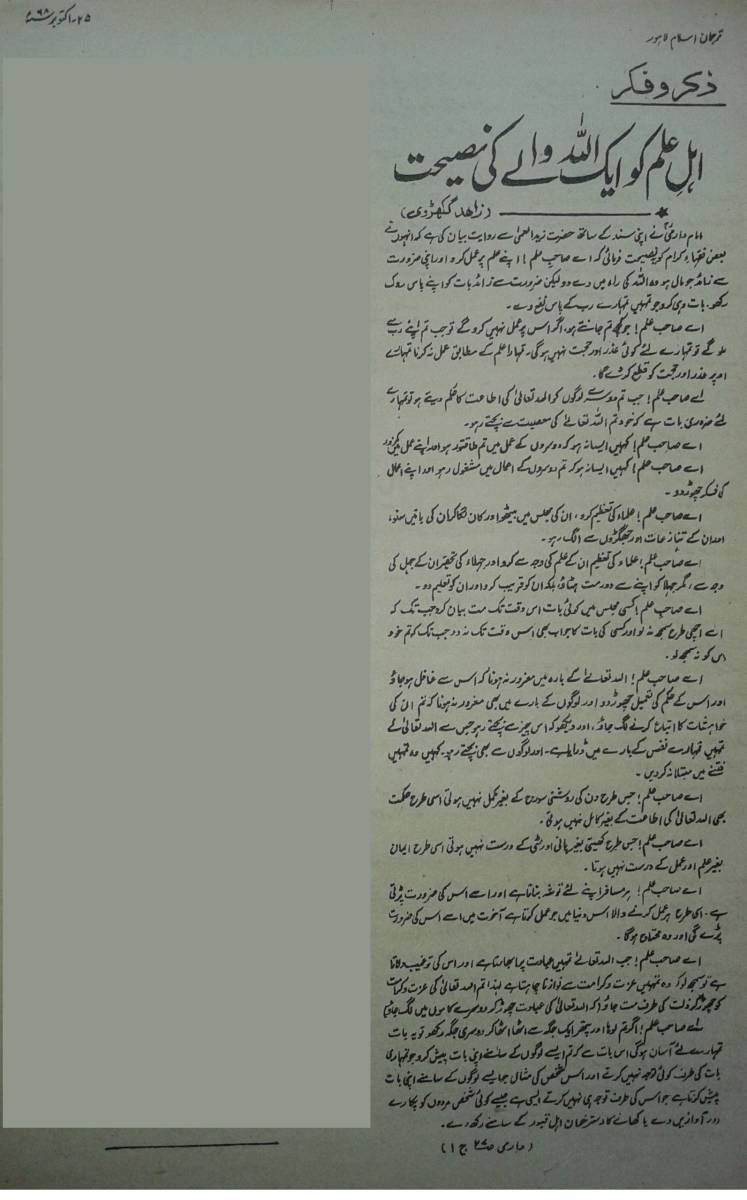 ترجمان اسلام لاہور
۲۵۔اکتوبر ۶۸ء
ذکر و فکر
اہلِ علم کو ایک اللہ والے کی نصیحت
(زاھد گکھڑوی)
امام دارمیؒ نے اپنی سند کے ساتھ حضرت زید العمیؒ سے روایت بیان کی ہے کہ انہوں نے
بعض فقہاء کرام کو نصیحت فرمائی کہ اے صاحبِ علم! اپنے علم پر عمل کرو اور اپنی ضرورت
سے زائد جو مال ہو وہ اللہ کی راہ میں دے دو لیکن ضرورت سے زائد بات کو اپنے پاس روک
رکھو۔ بات وہی کرو جو تمہیں تمہارے رب کے پاس نفع دے۔
اے صاحب علم! جو کچھ تم جانتے ہو، اگر اس پر عمل نہیں کرو گے تو جب تم اپنے رب سے
ملو گے تو تمہارے لئے کوئی عذر اور حجت نہیں ہوگی۔ تمہارا علم کے مطابق عمل نہ کرنا تمہارے
ہر عذر اور حجت کو قطع کر دے گا۔
اے صاحب علم! جب تم دوسرے لوگوں کو اللہ تعالیٰ کی اطاعت کا حکم دیتے ہو تو تمہارے
لئے ضروری بات ہے کہ خود تم اللہ تعالےٰ کی معصیت سے بچتے رہو۔
اے صاحب علم! کہیں ایسا نہ ہو کہ دوسروں کے عمل میں تم طاقتور ہو اور اپنے عمل میں کمزور
اے صاحب علم! کہیں ایسا نہ ہو کہ تم دوسروں کے اعمال میں مشغول رہو اور اپنے اعمال
کی فکر چھوڑ دو۔
اے صاحب علم! علماء کی تعظیم کرو، ان کی مجلس میں بیٹھو اور کان لگا کر ان کی باتیں سنو،
اور ان کے تنازعات اور جھگڑوں سے الگ رہو۔
اے صاحب علم! علماء کی تعظیم ان کے علم کی وجہ سے کرو اور جہلاء کی تحقیر ان کے جہل کی
وجہ سے، مگر جہلا کو اپنے سے دور مت ہٹاؤ، بلکہ ان کو قریب کرو اور ان کو تعلیم دو۔
اے صاحب علم! کسی مجلس میں کوئی بات اس وقت تک مت بیان کرو جب تک کہ
اسے اچھی طرح سمجھ نہ لو اور کسی کی بات کا جواب بھی اس وقت تک نہ دو جب تک کہ تم خود
اس کو نہ سمجھ لو۔
اے صاحب علم! اللہ تعالےٰ کے بارہ میں مغرور نہ ہونا کہ اس سے غافل ہو جاؤ
اور اس کے حکم کی تعمیل چھوڑ دو اور لوگوں کے بارے میں بھی مغرور نہ ہونا کہ تم ان کی
خواہشات کا اتباع کرنے لگ جاؤ، اور دیکھو کہ اس چیز سے بچتے رہو جس سے اللہ تعالیٰ نے
تمہیں تمہارے نفس کے بارے میں ڈرایا ہے۔ اور لوگوں سے بھی بچتے رہو۔ کہیں وہ تمہیں
فتنے میں مبتلا نہ کر دیں۔
اے صاحب علم! جس طرح دن کی روشنی سورج کے بغیر مکمل نہیں ہوتی اسی طرح حکمت
بھی اللہ تعالیٰ کی اطاعت کے بغیر کامل نہیں ہوتی۔
اے صاحب علم! جس طرح کھیتی بغیر پانی اور مٹی کے درست نہیں ہوتی اسی طرح ایمان
بغیر علم اور عمل کے درست نہیں ہوتا۔
اے صاحب علم! ہر مسافر اپنے لئے توشہ بناتا ہے اور اسے اس کی ضرورت پڑتی
ہے۔ اسی طرح ہر عمل کرنے والا اس دنیا میں جو عمل کرتا ہے آخرت میں اسے اس کی ضرورت
پڑے گی اور وہ محتاج ہوگا۔
اے صاحب علم! جب اللہ تعالےٰ تمہیں عبادت پر ابھارتا ہے اور اس کی ترغیب دلاتا
ہے تو سمجھ لو کہ وہ تمہیں عزت و کرامت سے نوازنا چاہتا ہے لہٰذا تم اللہ تعالیٰ کی عزت و کرامت
کو چھوڑ کر ذلت کی طرف مت جاؤ (کہ اللہ تعالیٰ کی عبادت چھوڑ کر دوسرے کاموں میں لگ جاؤ)
اے صاحب علم! اگر تم لوہا اور پتھر ایک جگہ سے اٹھا اٹھا کر دوسری جگہ رکھو تو یہ بات
تمہارے لئے آسان ہوگی اس بات سے کہ تم ایسے لوگوں کے سامنے اپنی بات پیش کرو جو تمہاری
بات کی طرف کوئی توجہ نہیں کرتے اور اس شخص کی مثال جو ایسے لوگوں کے سامنے اپنی بات
پیش کرتا ہے جو اس کی طرف توجہ ہی نہیں کرتے ایسی ہے جیسے کوئی شخص مردوں کو پکارے
اور آوازیں دے یا کھانے کا دسترخوان اہل قبور کے سامنے رکھ دے۔
(دارمی صـ۲۷ ج ۱)